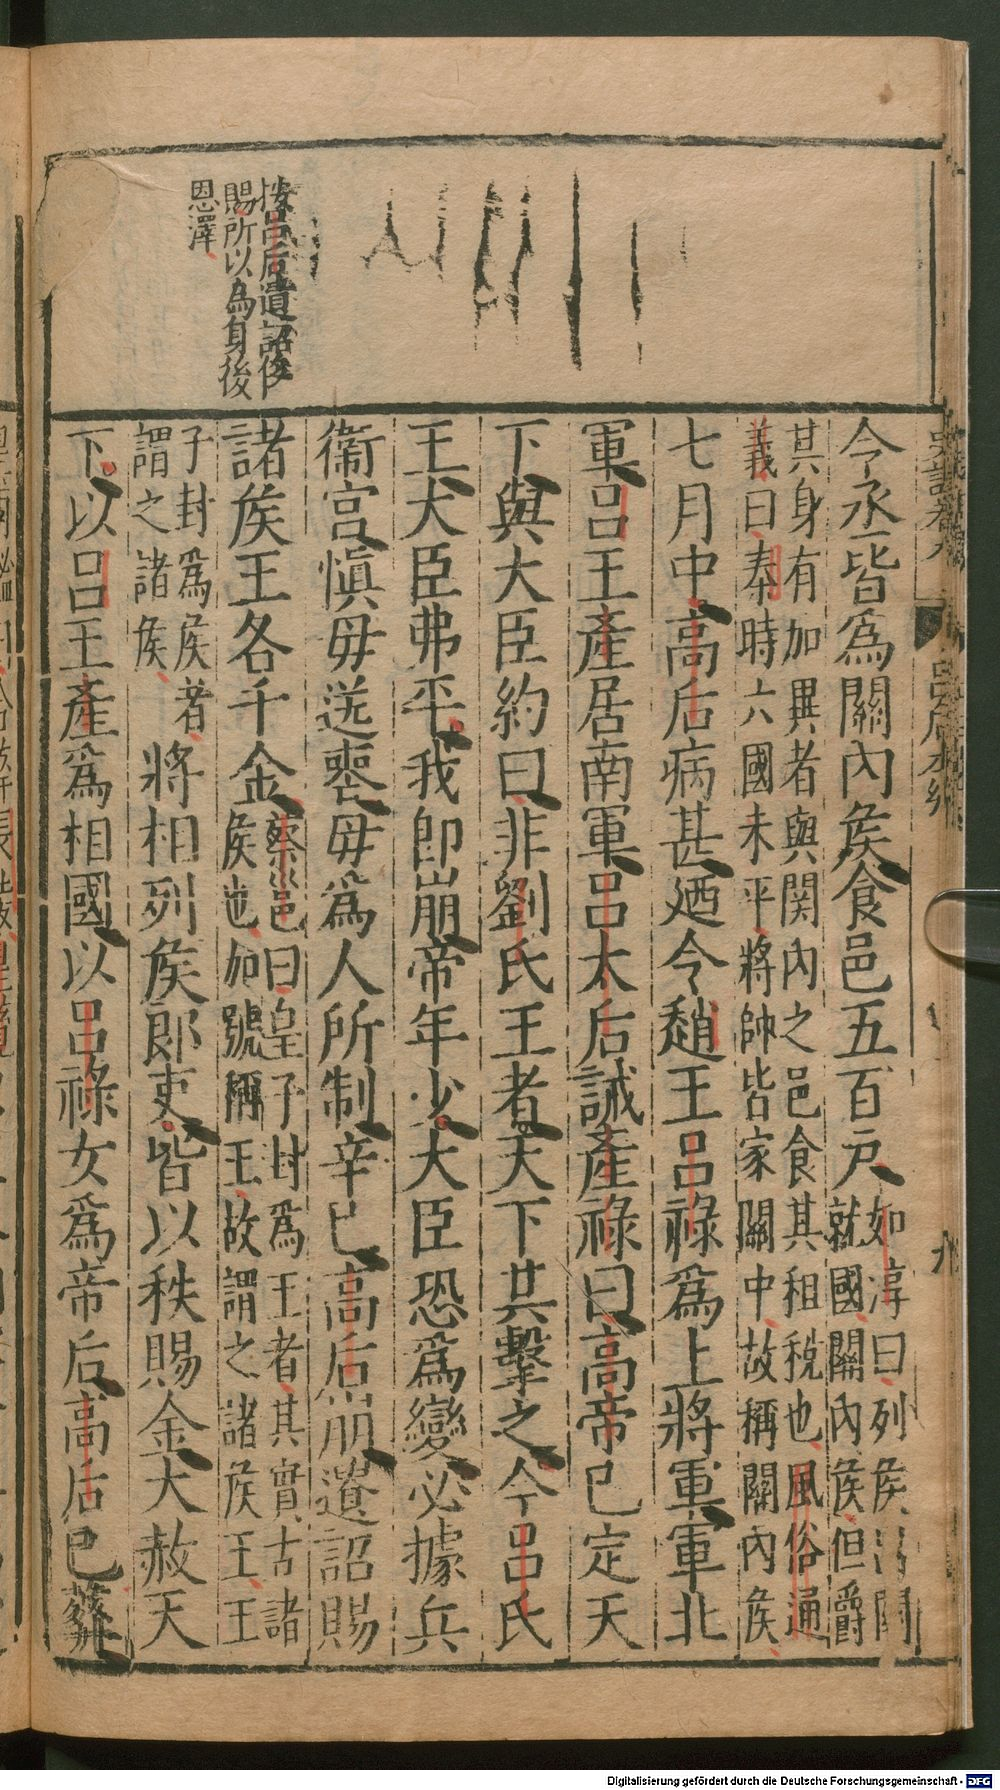 按呂后遺詔俊
賜所以為身後
恩澤
令丞皆爲關內矦食邑五百戶如淳曰列矦出關
就國關內矦但爵
其身有加異者與関內之邑食其租稅也風俗通
義曰秦時六國未平將帥皆家關中故稱關內矦
七月中高后病甚迺令趙王呂祿爲上將軍軍北
軍呂王產居南軍呂太后誡產祿曰高帝已定天
下與大臣約曰非劉氏王者天下共擊之今呂氏
王大臣弗平我即崩帝年少大臣恐爲變必據兵
衞宮愼毋送喪毋爲人所制辛巳高后崩遺詔賜
諸矦王各千金蔡邕曰皇子封爲王者其實古諸
矦也加號稱王故謂之諸矦王王
子封爲矦者
謂之諸矦
將相列矦郎吏皆以秩賜金大赦天
下以呂王產爲相國以呂祿女爲帝后高后已葬
史記卷九
呂后本紀
九
Digitalisierung gefördert durch die Deutsche Forschungsgemeinschaft - DFG